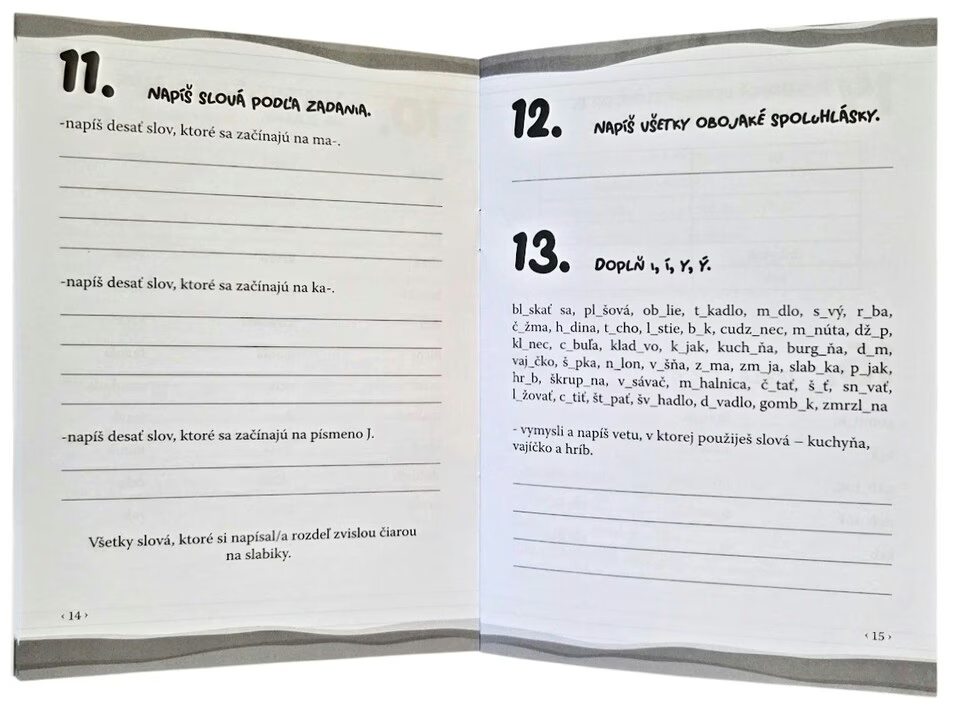 11. NAPÍŠ SLOVÁ PODĽA ZADANIA.
-napíš desať slov, ktoré sa začínajú na ma-.
-napíš desať slov, ktoré sa začínajú na ka-.
-napíš desať slov, ktoré sa začínajú na písmeno J.
Všetky slová, ktoré si napísal/a rozdeľ zvislou čiarou
na slabiky.
‹ 14 ›
12. NAPÍŠ VŠETKY OBOJAKÉ SPOLUHLÁSKY.
13. DOPLŇ I, Í, Y, Ý.
bl_skať sa, pl_šová, ob_lie, t_kadlo, m_dlo, s_vý, r_ba,
č_žma, h_dina, t_cho, l_stie, b_k, cudz_nec, m_núta, dž_p,
kl_nec, c_buľa, klad_vo, k_jak, kuch_ňa, burg_ňa, d_m,
vaj_čko, š_pka, n_lon, v_šňa, z_ma, zm_ja, slab_ka, p_jak,
hr_b, škrup_na, v_sávač, m_halnica, č_tať, š_ť, sn_vať,
l_žovať, c_tiť, št_pať, šv_hadlo, d_vadlo, gomb_k, zmrzl_na
- vymysli a napíš vetu, v ktorej použiješ slová – kuchyňa,
vajíčko a hríb.
‹ 15 ›